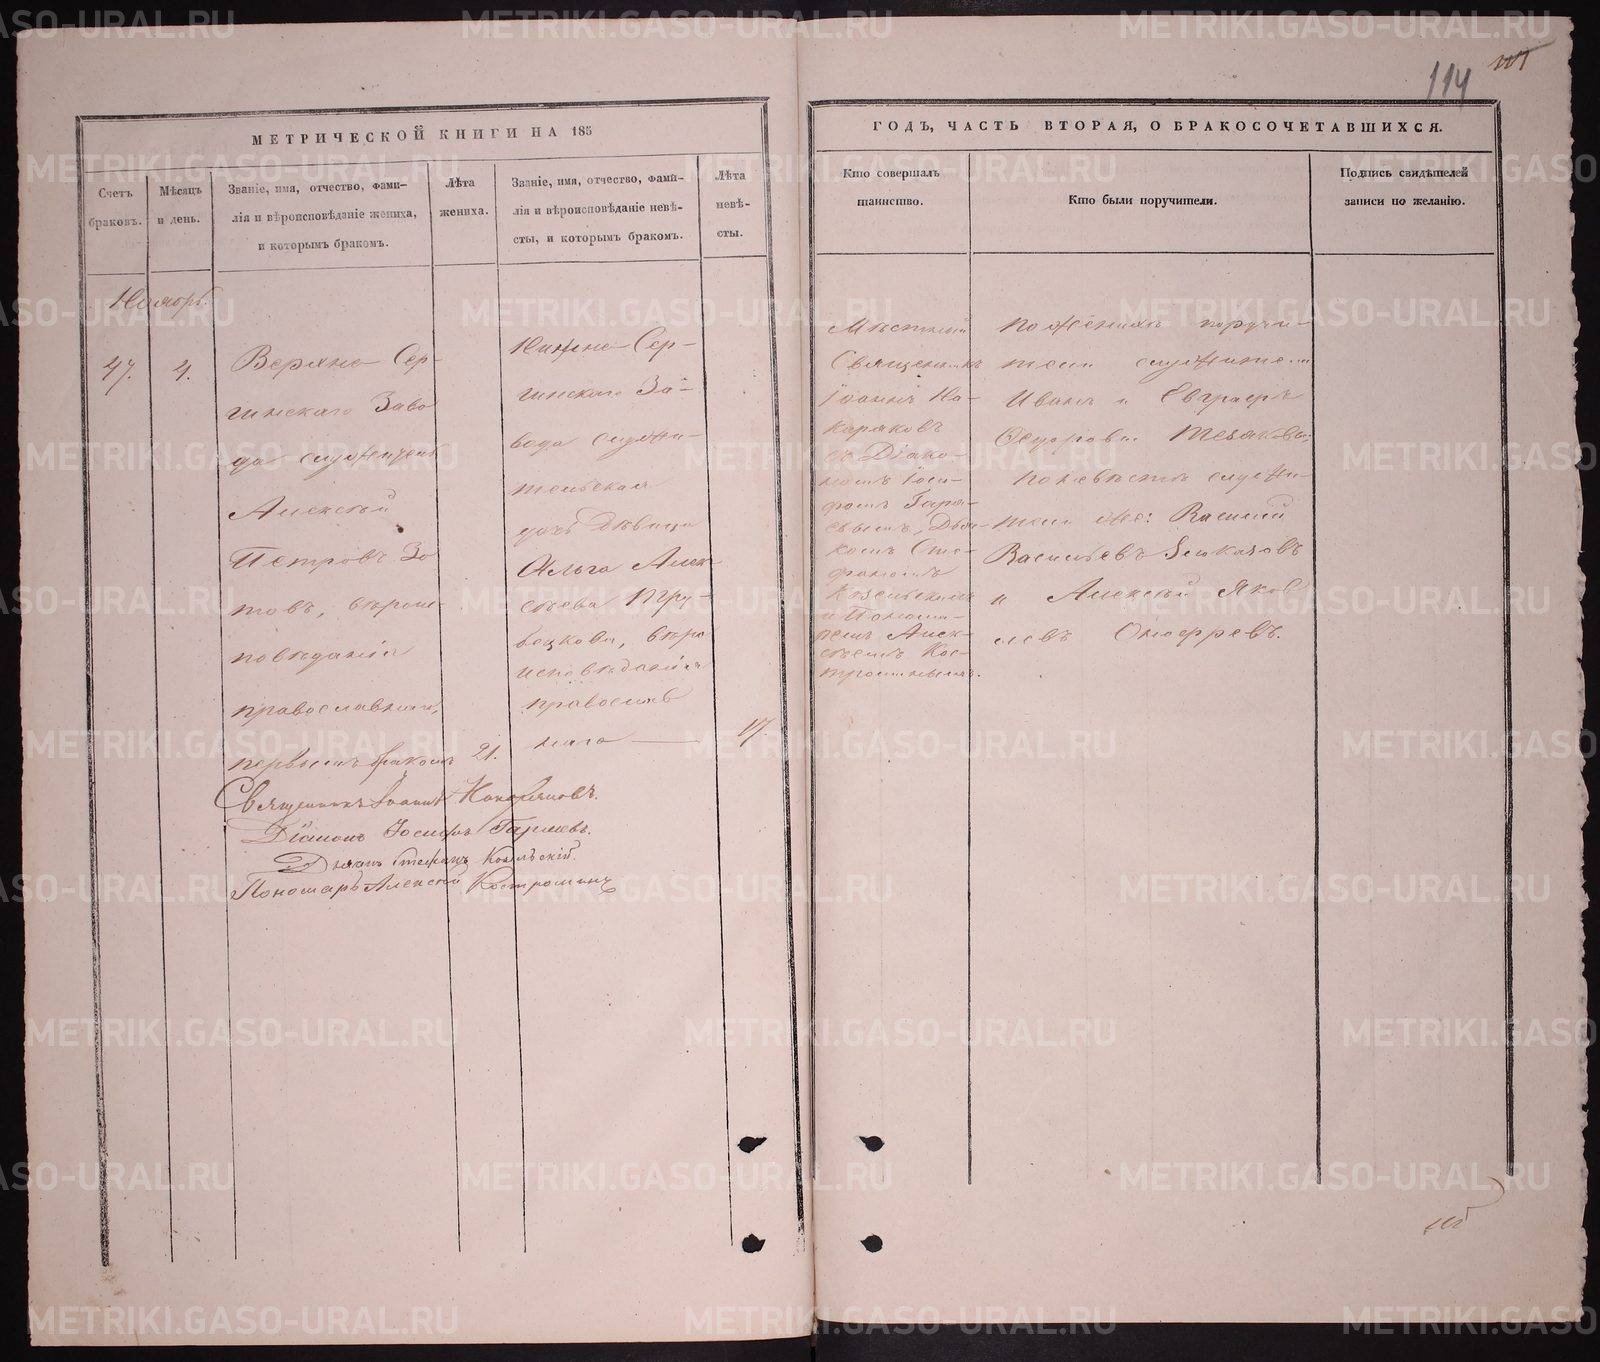 114
МЕТРИЧЕСКОЙ КНИГИ НА 185
ГОДЪ, ЧАСТЬ ВТОРАЯ, О БРАКОСОЧЕТАВШИХСЯ.
Счетъ
браковъ.
Мѣсяцъ
и день.
Званіе, имя, отчество, фами-
лія и вѣроисповѣданіе жениха,
и которымъ бракомъ.
Лѣта
жениха.
Званіе, имя, отчество, фами-
лія и вѣроисповѣданіе невѣ-
сты, и которымъ бракомъ.
Лѣта
невѣ-
сты.
Кто совершалъ
таинство.
Кто были поручители.
Подпись свидѣтелей
записи по желанію.
Ноябрь.
47.
4.
Верхне Сер-
гинскаго Заво
да служитель
Алексѣй
Петровъ Зо
товъ, вѣроис-
повѣданія
православнаго,
первымъ бракомъ
21.
Нижне Сер-
гинскаго За-
вода служи-
тельская
дочь дѣвица
Ольга Алек-
сѣева Тру-
бецкова, вѣро
исповѣданія
православ
наго
17.
Мѣстный
Священникъ
Іоаннъ
съ Діако-
номъ Іоси-
фомъ Гаря-
евымъ, Дья-
комъ Сте-
фаномъ
Козельскимъ
и Понома-
ремъ Алек-
сѣемъ Кос-
троминымъ.
По женихѣ поручи-
тели служители
Иванъ и Евграфъ
Ѳедоровы
По невѣстѣ служи-
тели же: Василій
Васильевъ
и Алексѣй Яков
левъ Оноферевъ.
Священникъ Іоаннъ
Діаконъ Іосифъ Гаряевъ.
Дьякъ Стефанъ Козельскій.
Пономарь Алексѣй Костроминъ
METRIKI.GASO-URAL.RU